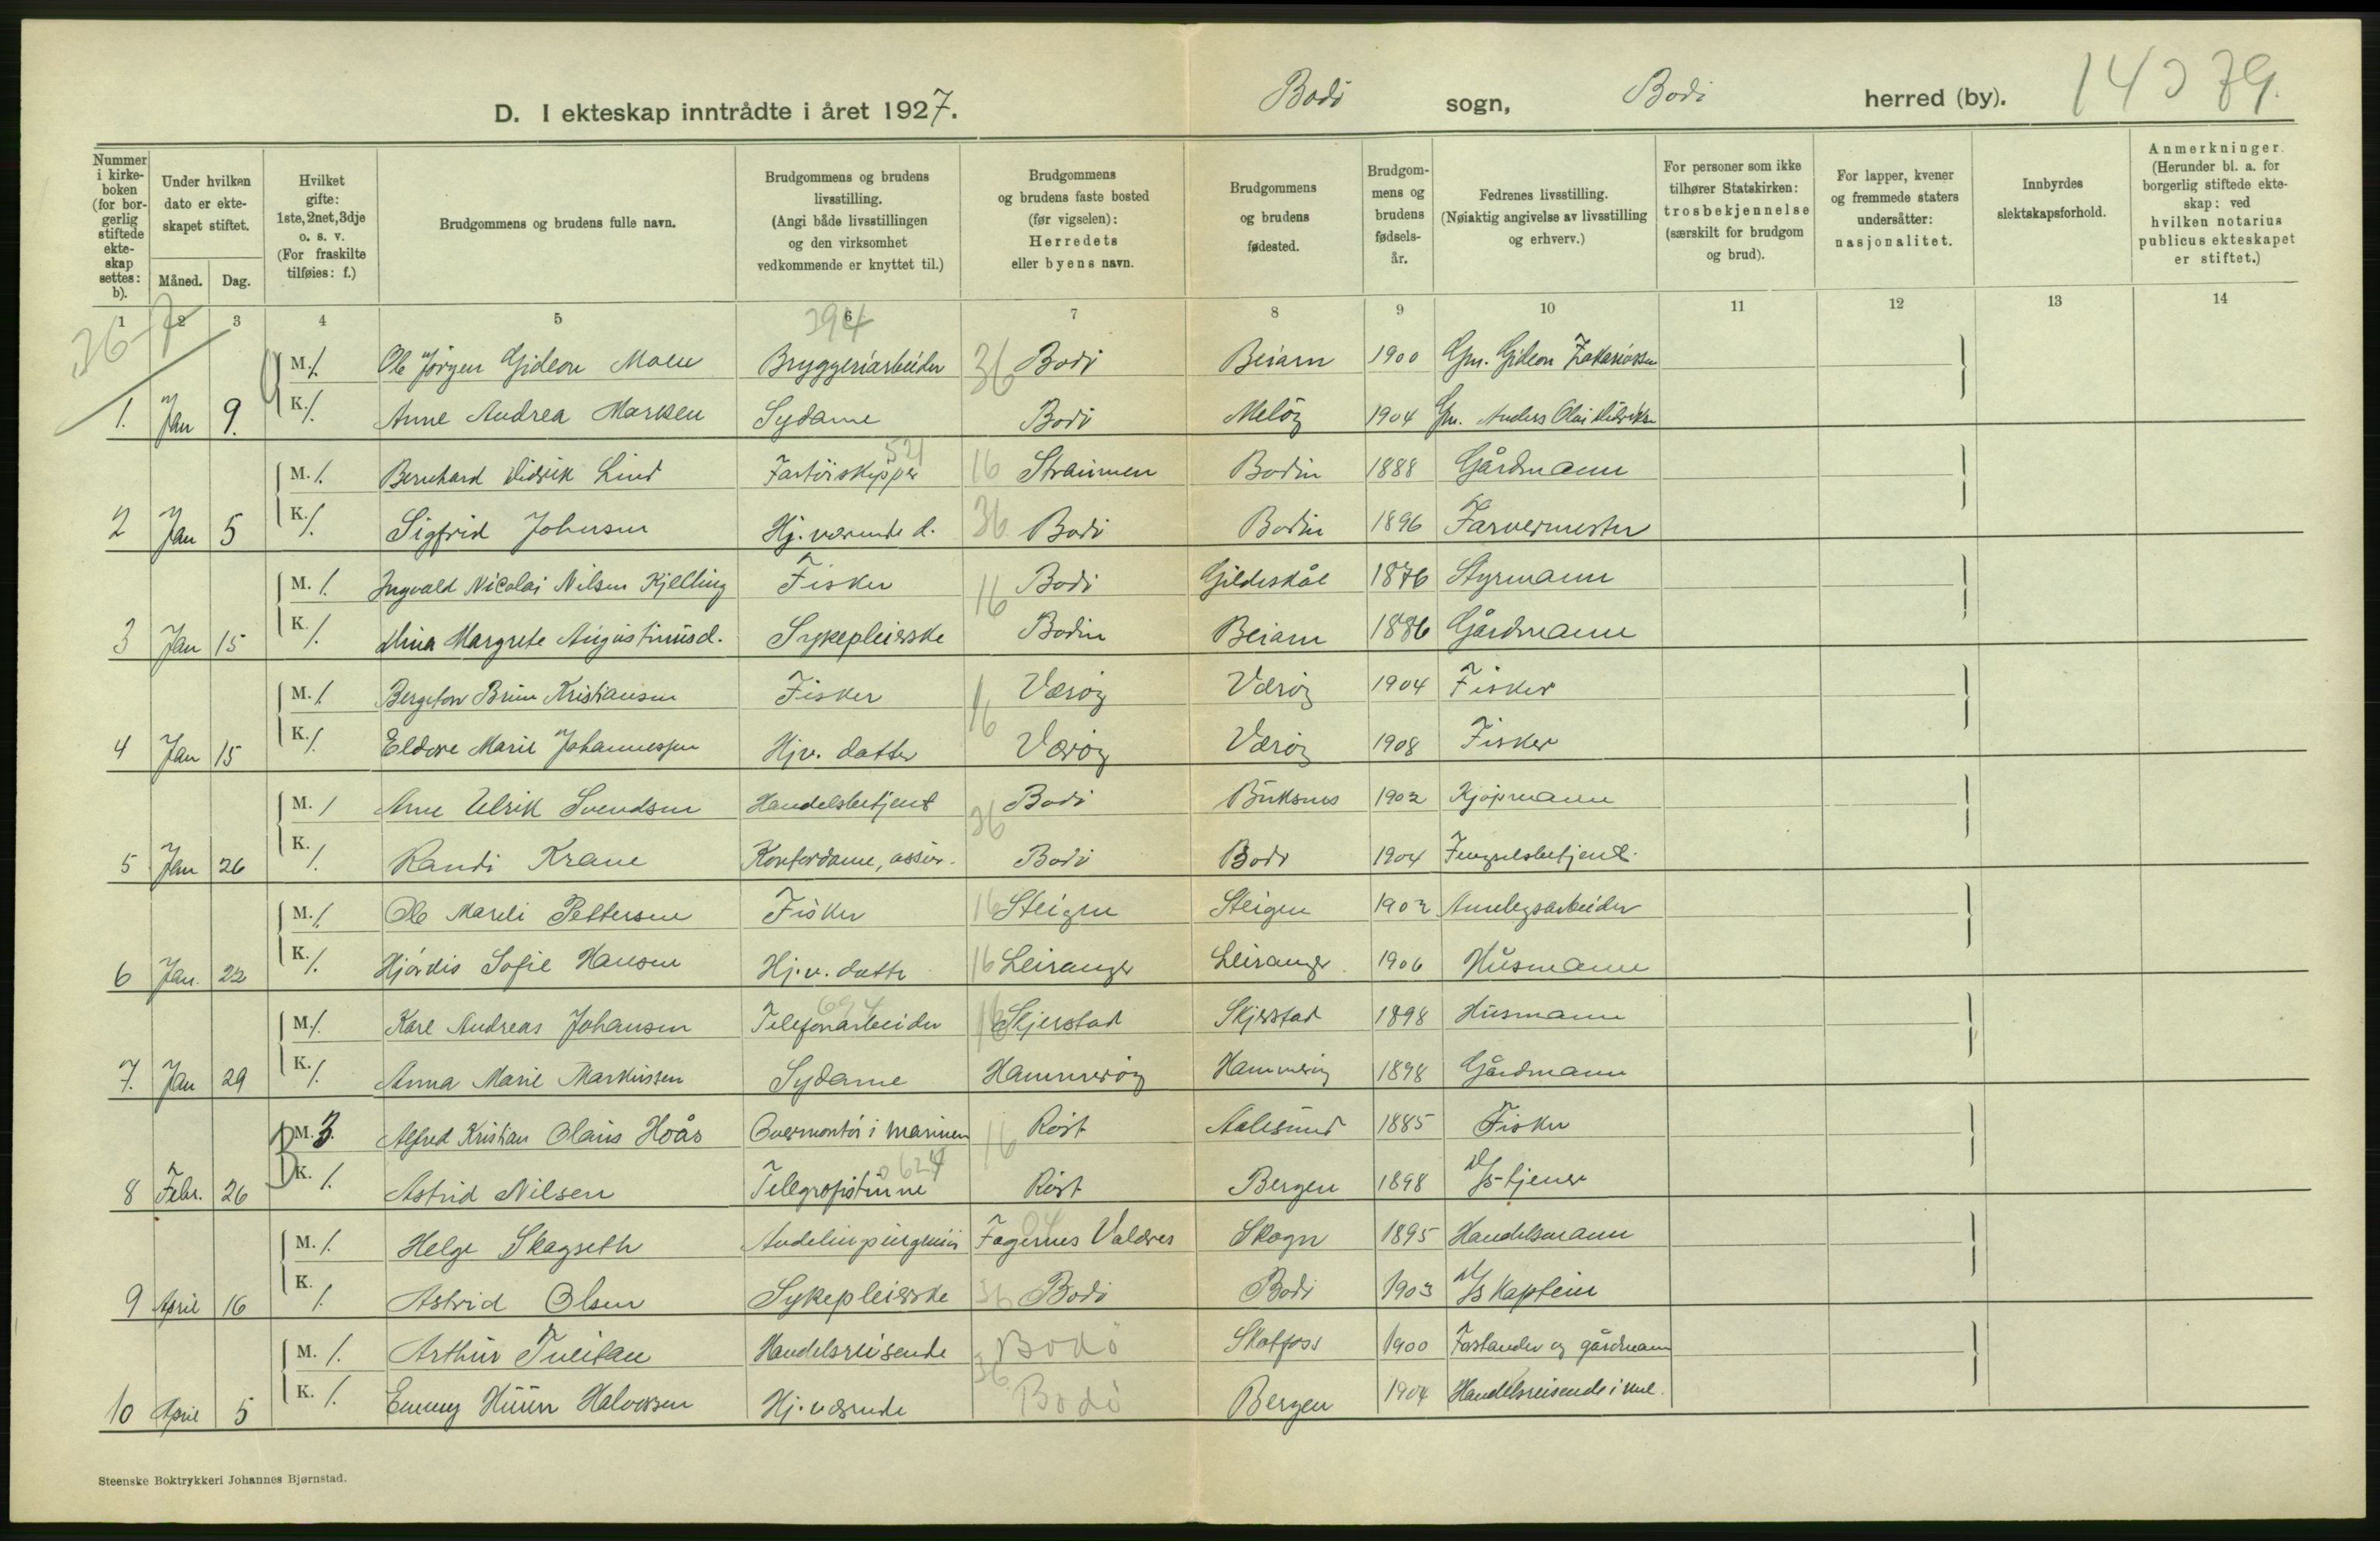 D. I ekteskap inntrådte i året 1927.
Bodö sogn, Bodö herred (by).
Nummer i kirkeboken (for borgerlig stiftede ekteskap settes: b).
Under hvilken dato er ekteskapet stiftet.
Måned.
Dag.
Hvilket gifte: 1ste, 2net, 3dje o. s. v. (For fraskilte tilføies: f.)
Brudgommens og brudens fulle navn.
Brudgommens og brudens livsstilling. (Angi både livsstillingen og den virksomhet vedkommende er knyttet til.)
Brudgommens og brudens faste bosted (før vigselen): Herredets eller byens navn.
Brudgommens og brudens fødested.
Brudgommens og brudens fødselsår.
Fedrenes livsstilling. (Nøiaktig angivelse av livsstilling og erhverv.)
For personer som ikke tilhører Statskirken: trosbekjennelse (særskilt for brudgom og brud).
For lapper, kvener og fremmede staters undersåtter: nasjonalitet.
Innbyrdes slektskapsforhold.
Anmerkninger. (Herunder bl. a. for borgerlig stiftede ekteskap: ved hvilken notarius publicus ekteskapet er stiftet.)
1 2 3 4 5 6 7 8 9 10 11 12 13 14
36-7 394
M. 1. Ole Jörgen Gideon Moen Bryggeriarbeider 36 Bodö Beiarn 1900 Gm. Gideon Zakariassen
1. Jan 9. K. 1. Anne Andrea Marken Sydame Bodö Melöy 1904 Gm. Anders Olai Didriksen
M. 1. Bernhard Didrik Lind Fartöiskipper 521 16 Straumen Bodin 1888 Gårdmann
2 Jan 5 K. 1. Sigfrid Johnsen Hj. værende d. 36 Bodö Bodin 1896 Farvermester
M. 1. Ingvald Nicolai Nilsen Kjelling Fisker 16 Bodö Gildeskål 1876 Styrmann
3 Jan 15 K. 1. Dina Margrete Augustinusd. Sykepleierske Bodin Beiarn 1886 Gårdmann
M. 1. Bergeton Brun Kristiansen Fisker 16 Væröy Væröy 1904 Fisker
4 Jan 15 K. 1. Eldore Marie Johannessen Hjv. datter Væröy Væröy 1908 Fisker
M. 1 Arne Ulrik Svendsen Handelsbetjent 36 Bodö Buksnes 1902 Kjöpmann
5 Jan 26 K. 1. Randi Krane Kontordame, assur. Bodö Bodö 1904 Fengselsbetjent
M. 1. Ole Mareli Pettersen Fisker 16 Steigen Steigen 1902 Anlegsarbeider
6 Jan. 22 K. 1. Hjördis Sofie Hansen Hj. v. datter 16 Leiranger Leiranger 1906 Husmann
M. 1. Kare Andreas Johansen Telefonarbeider 694 16 Skjerstad Skjerstad 1898 Husmann
7. Jan 29 K. 1. Anna Marie Markussen Sydame Hammeröy Hammeröy 1898 Gårdmann
M. 3. Alfred Kristian Olaus Hoås Overmontör i marinen 16 Röst Aalesund 1885 Fisker
8 Febr. 26 K. 1. Astrid Nilsen Telegrafistinne 624 Röst Bergen 1898 D/S-tjener
M. 1. Helge Skagseth Fagernes Valdres Skogn 1895 Handelsmann
9 April 16 K. 1. Astrid Olsen Sykepleierske 36 Bodö Bodö 1903 D/S Kaptein
M. 1. Arthur Tveitan Handelsreisende 36 Bodö Skotfoss 1900 Forstander og gårdmann
10 April 5 K. 1. Emmy Huun Halvorsen Hj. værende Bodö Bergen 1904 Handelsreisende i
Steenske Boktrykkeri Johannes Bjørnstad.